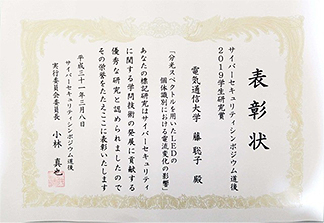 表彰状
サイバーセキュリティシンポジウム道後
2019学生研究賞
電気通信大学 藤 聡子 殿
「分光スペクトルを用いたLEDの
個体識別における電流変化の影響」
あなたの標記研究はサイバーセキュリティ
に関する学問技術の発展に貢献する
優秀な研究と認められましたので
その栄誉をたたえここに表彰いたします
平成三十一年三月八日
サイバーセキュリティシンポジウム道後
実行委員会委員長 小林 真也